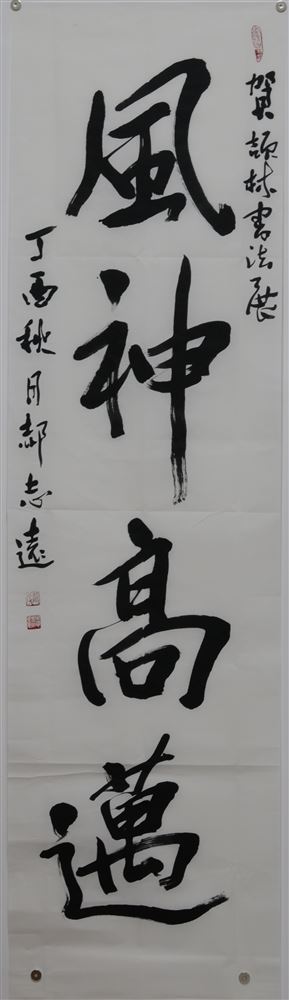 賀頡林書法展
風神高邁
丁酉秋月郝志遠